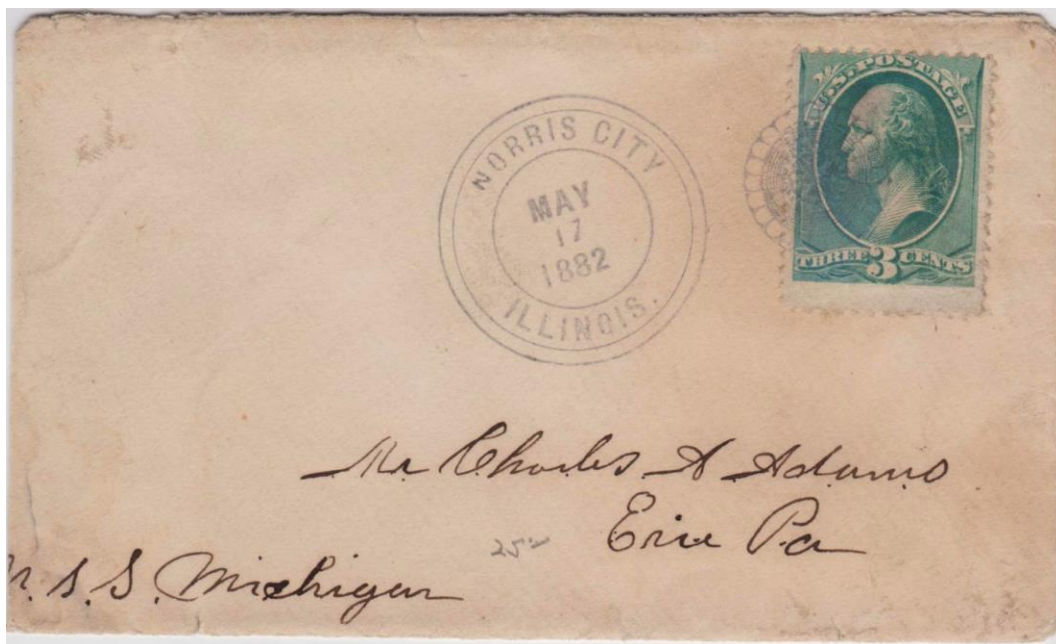 U.S. POSTAGE
THREE 3 CENTS
NORRIS CITY
MAY
17
1882
ILLINOIS.
Mr Charles A Adams
Erie Pa
25
U.S.S. Michigan